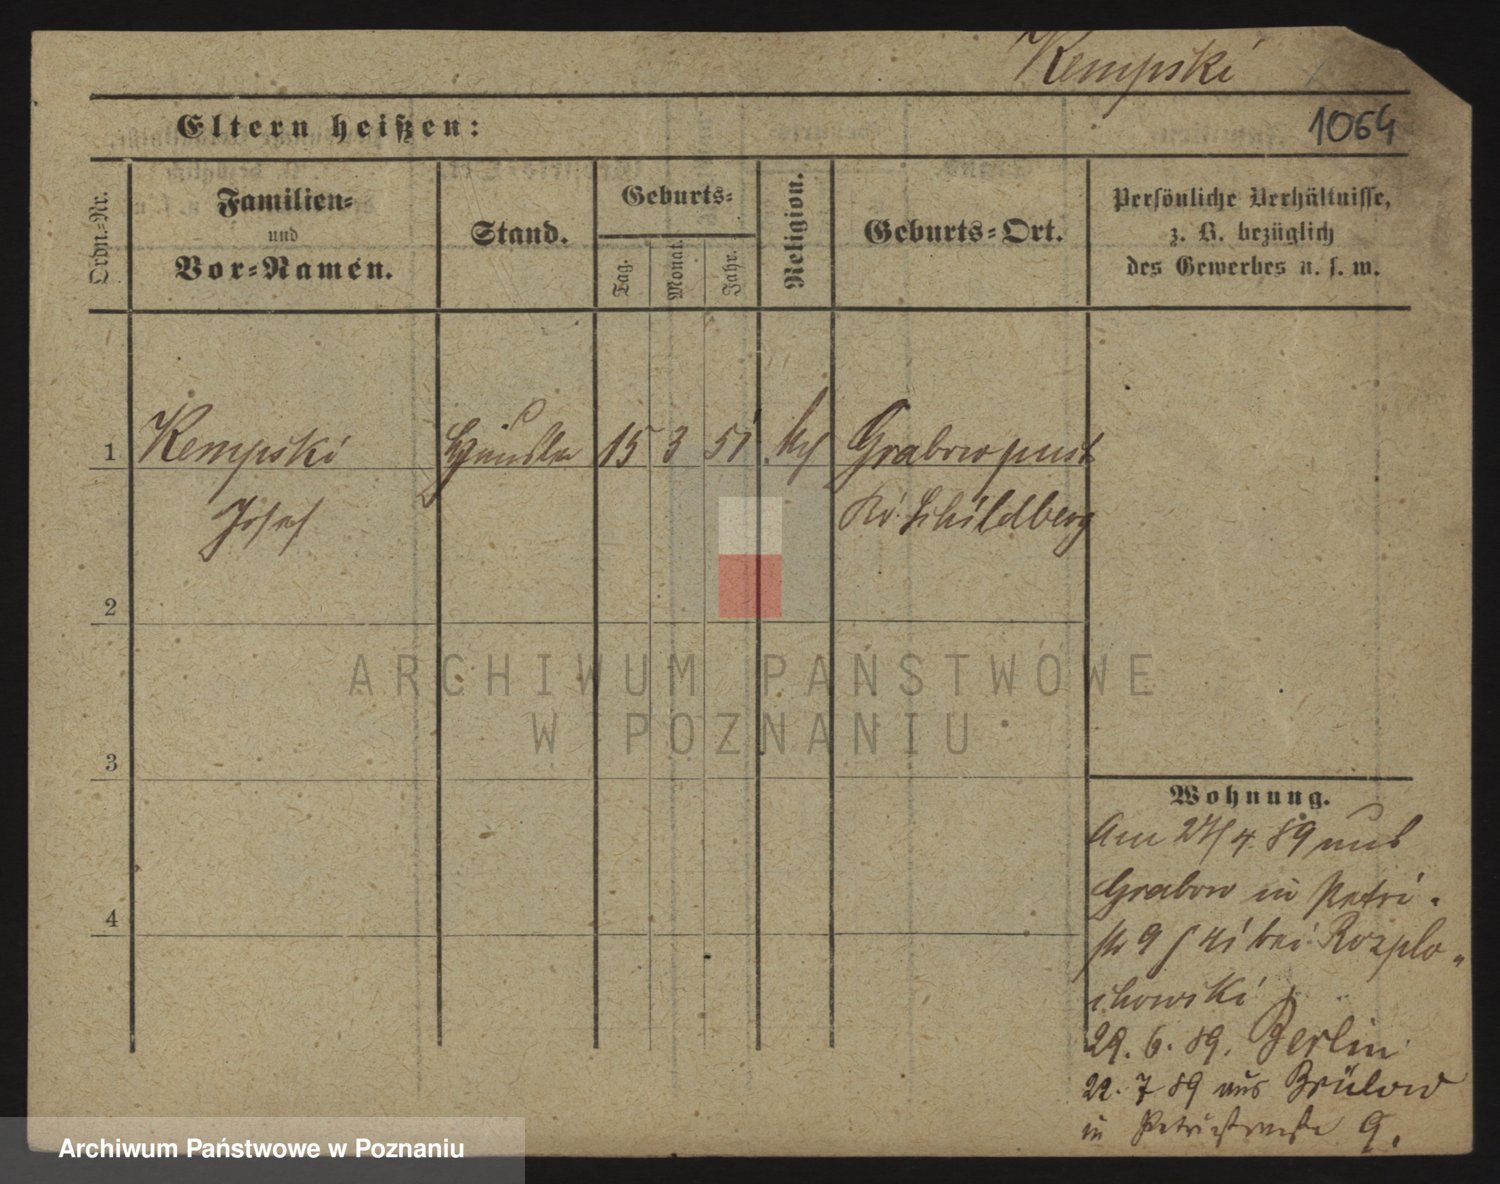 Kempski
1064
Eltern heißen:
Ordn.-Nr.
Familien-
und
Vor-Namen.
Stand.
Geburts-
Tag.
Monat.
Jahr.
Religion.
Geburts-Ort.
Persönliche Verhältnisse,
z. B. bezüglich
des Gewerbes u. s. w.
1 Kempski 15 3 51 Grabow
Josef Kr. Schildberg
2
3
4
ARCHIWUM PAŃSTWOWE
W POZNANIU
Wohnung.
Am 4. 89 aus
Grabow in Petri-
str 9 bei Rozplo-
chowski
29. 6. 89. Berlin
22. 7 89 aus Brülow
in Petristraße 9.
Archiwum Państwowe w Poznaniu